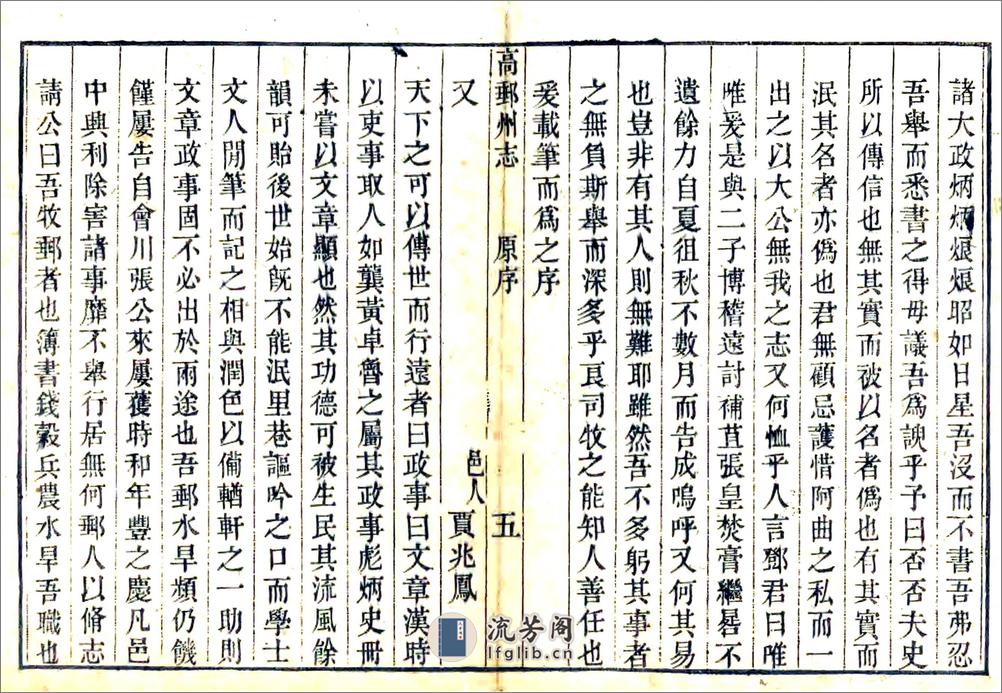 諸大政炳炳烺烺昭如日星吾沒而不書吾弗忍
吾舉而悉書之得毋議吾爲諛乎予曰否否夫史
所以傳信也無其實而被以名者僞也有其實而
泯其名者亦僞也君無顧忌護惜阿曲之私而一
出之以大公無我之志又何恤乎人言鄧君曰唯
唯爰是與二子博稽遠討補苴張皇焚膏繼晷不
遺餘力自夏徂秋不數月而告成嗚呼又何其易
也豈非有其人則無難耶雖然吾不多躬其事者
之無負斯舉而深多乎良司牧之能知人善任也
爰載筆而爲之序
高郵州志 原序 五
又 邑人賈兆鳳
天下之可以傳世而行遠者曰政事曰文章漢時
以吏事取人如龔黃卓魯之屬其政事彪炳史冊
未嘗以文章顯也然其功德可被生民其流風餘
韻可貽後世始旣不能泯里巷謳吟之口而學士
文人閒筆而記之相與潤色以備輶軒之一助則
文章政事固不必出於兩途也吾郵水旱頻仍饑
饉屢告自會川張公來屢獲時和年豐之慶凡邑
中興利除害諸事靡不舉行居無何郵人以脩志
請公曰吾牧郵者也簿書錢穀兵農水旱吾職也
流芳阁
lfglib.cn